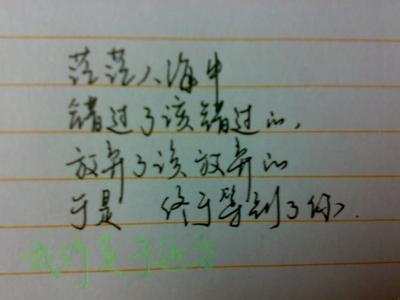 茫茫人海中
错过了该错过的,
放弃了该放弃的
于是 终于等到了你.